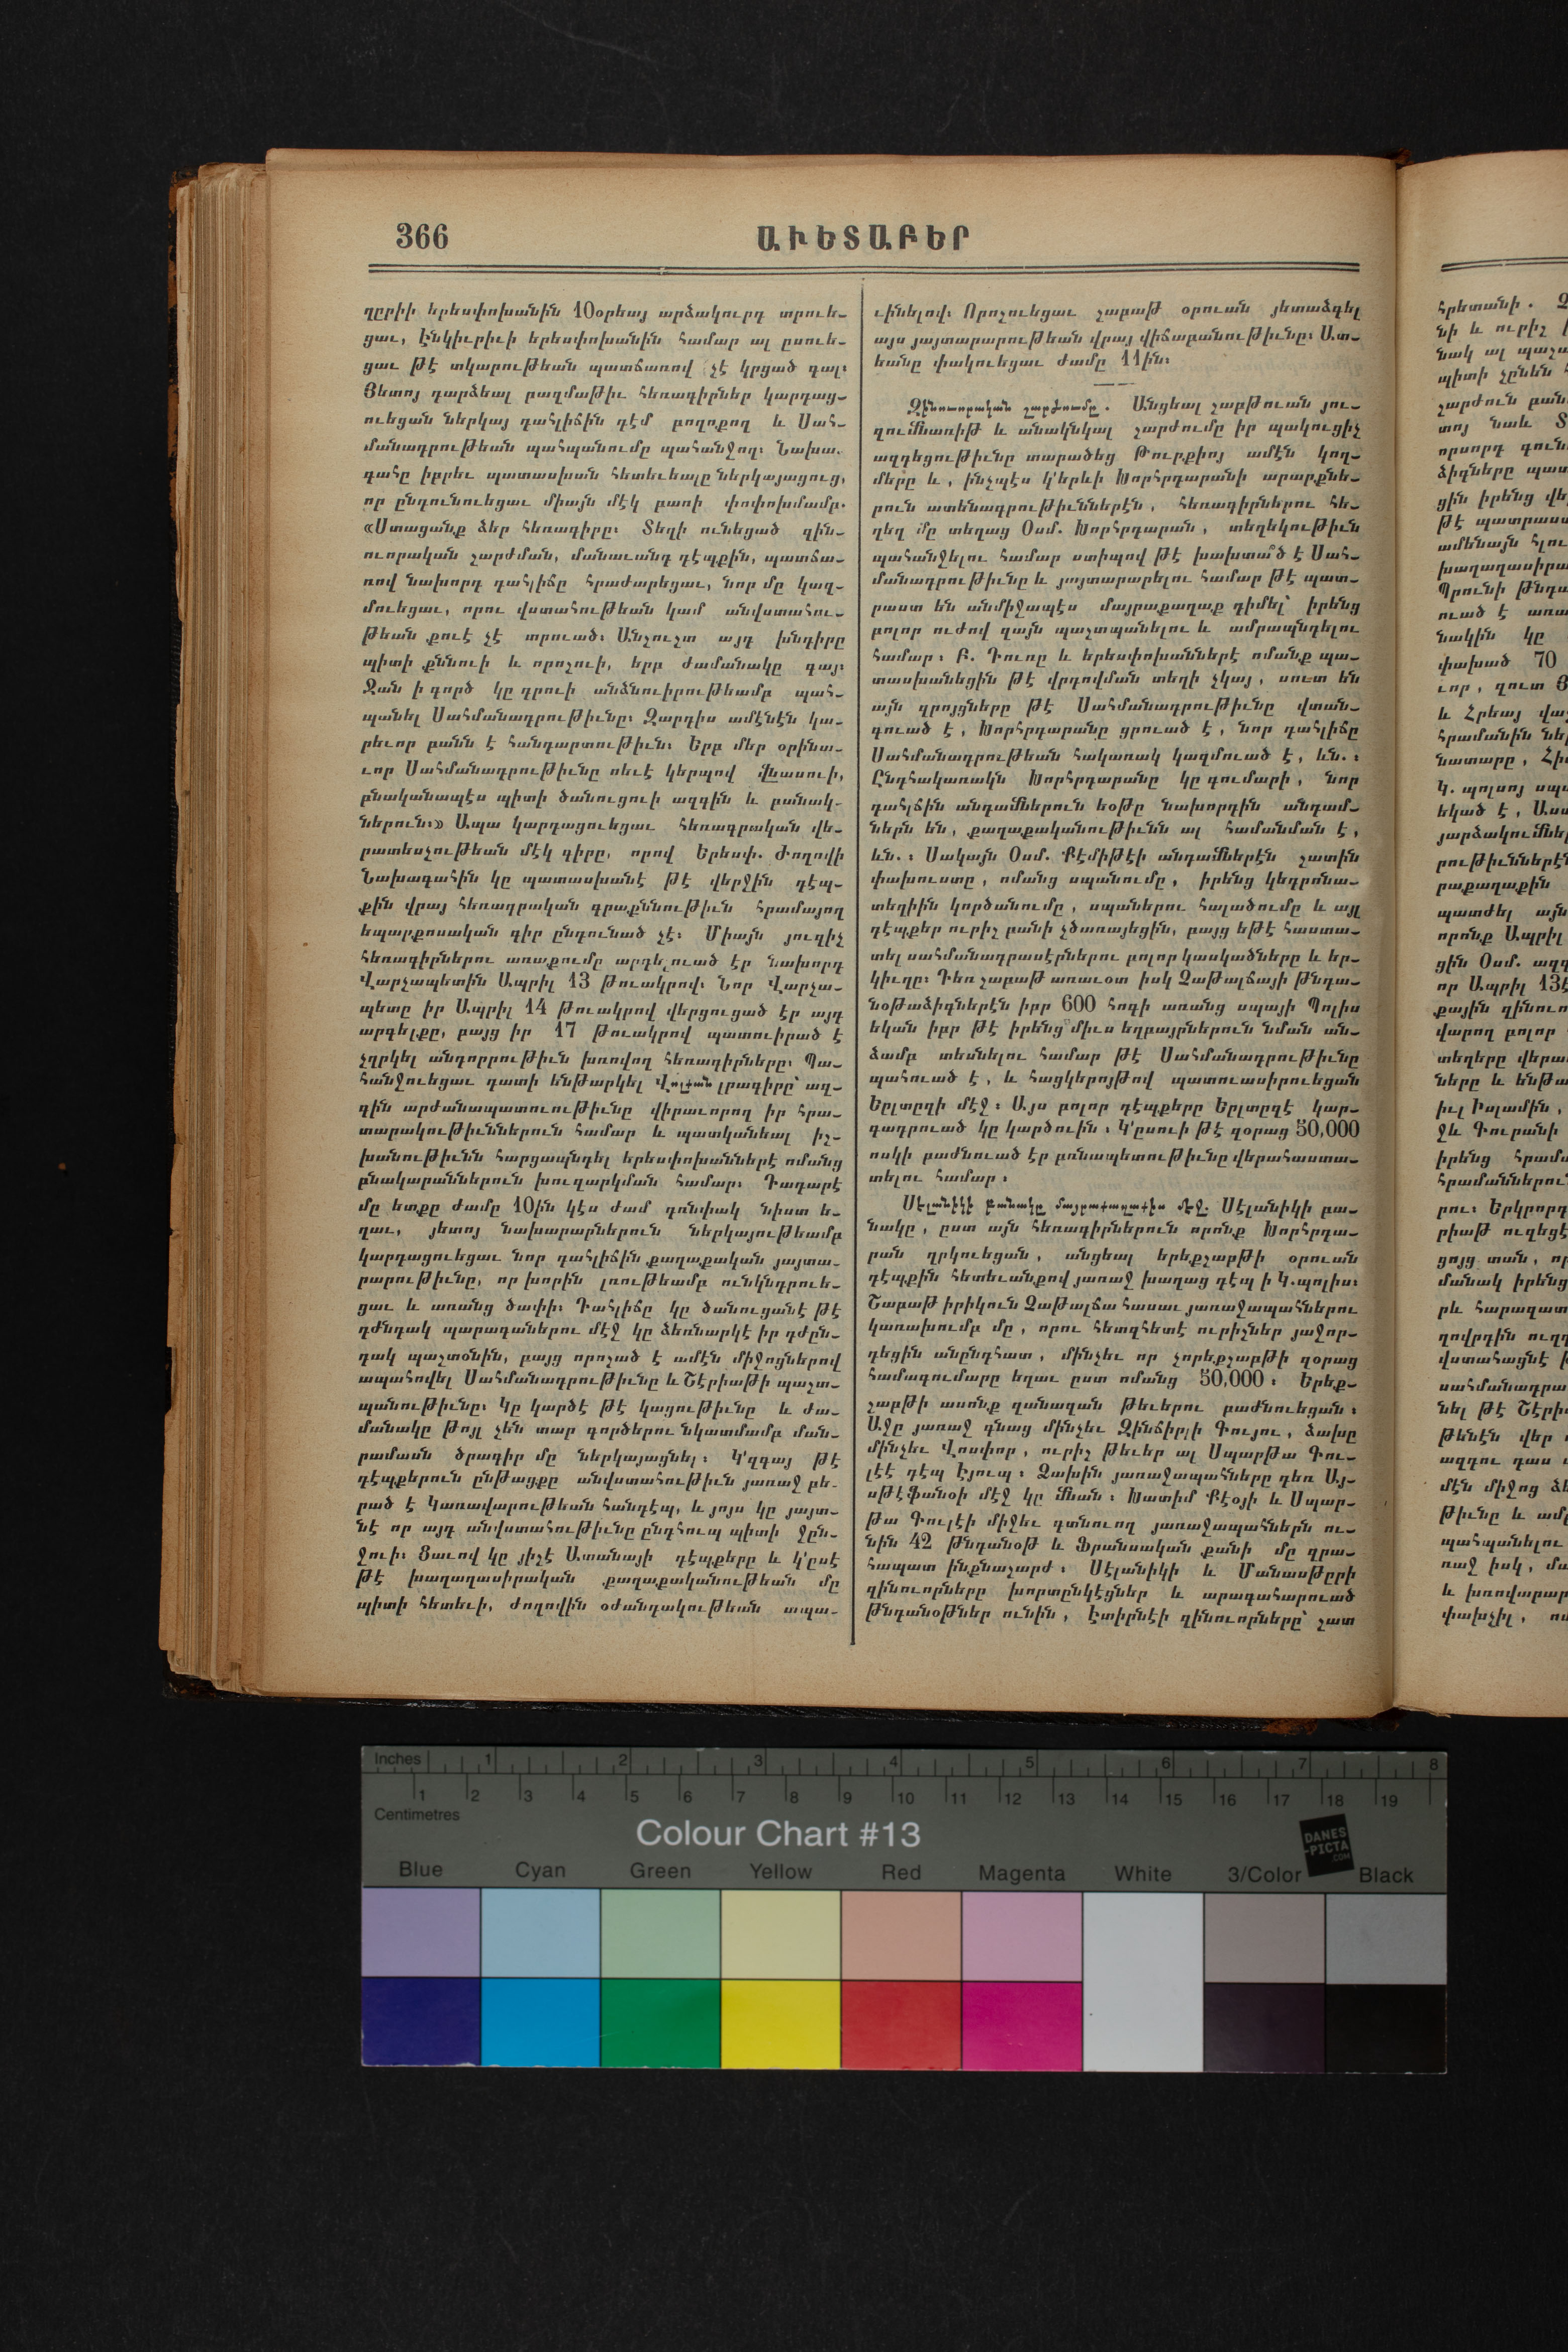 366
ԱՒԵՏԱԲԵՐ
ղըրիի երեսփոխանին 10օրեայ արձակուրդ տրուե-
ցաւ, Էնկիւրիւի երեսփոխանին համար ալ ըսուե-
ցաւ թէ տկարութեան պատճառով չէ կրցած գալ։
Յետոյ դարձեալ բազմաթիւ հեռագիրներ կարդաց-
ուեցան ներկայ դահլիճին դէմ բողոքող և Սահ-
մանադրութեան պահպանումը պահանջող։ Նախա-
գահը իբրեւ պատասխան հետեւեալը ներկայացուց,
որ ընդունուեցաւ միայն մէկ բառի փոփոխմամբ.
«Ստացանք ձեր հեռագիրը։ Տեղի ունեցած զին-
ուորական շարժման, մանաւանդ դէպքին, պատճա-
ռով նախորդ դահլիճը հրաժարեցաւ, նոր մը կազ-
մուեցաւ, որու վստահութեան կամ անվստահու-
թեան քուէ չէ տրուած։ Անշուշտ այդ խնդիրը
պիտի քննուի և որոշուի, երբ ժամանակը գայ։
Ջան ի գործ կը դրուի անձնուիրութեամբ պահ-
պանել Սահմանադրութիւնը։ Զարդիս ամէնէն կա-
րեւոր բանն է հանդարտութիւն։ Երբ մեր օրինա-
ւոր Սահմանադրութիւնը ոեւէ կերպով վնասուի,
բնականապէս պիտի ծանուցուի ազգին և բանակ-
ներուն։» Ապա կարդացուեցաւ հեռագրական վե-
րատեսչութեան մէկ գիրը, որով Երեսփ. Ժողովի
Նախագահին կը պատասխանէ թէ վերջին դէպ-
քին վրայ հեռագրական գրաքննութիւն հրամայող
եպարքոսական գիր ընդունած չէ։ Միայն յուզիչ
հեռագիրներու առաքումը արգելուած էր նախորդ
Վարչապետին Ապրիլ 13 թուակրով։ Նոր Վարչա-
պետը իր Ապրիլ 14 թուակրով վերցուցած էր այդ
արգելքը, բայց իր 17 թուակրով պատուիրած է
չղրկել անդորրութիւն խռովող հեռագիրները։ Պա-
հանջուեցաւ դատի ենթարկել Վօլքան լրագիրը՝ ազ-
գին արժանապատուութիւնը վիրաւորող իր հրա-
տարակութիւններուն համար և պատկանեալ իշ-
խանութիւնն հարցապնդել երեսփոխաններէ ոմանց
բնակարաններուն խուզարկման համար։ Դադարէ
մը ետքը ժամը 10ին կէս ժամ դռնփակ նիստ ե-
ղաւ, յետոյ նախարարներուն ներկայութեամբ
կարդացուեցաւ նոր դահլիճին քաղաքական յայտա-
րարութիւնը, որ խորին լռութեամբ ունկնդրուե-
ցաւ և առանց ծափի։ Դահլիճը կը ծանուցանէ թէ
դժնդակ պարագաներու մէջ կը ձեռնարկէ իր դժըն-
դակ պաշտօնին, բայց որոշած է ամէն միջոցներով
ապահովել Սահմանադրութիւնը և Շէրիաթի պաշտ-
պանութիւնը։ Կը կարծէ թէ կացութիւնը և ժա-
մանակը թոյլ չեն տար գործերու նկատմամբ ման-
րամասն ծրագիր մը ներկայացնել։ Կ՚զգայ թէ
դէպքերուն ընթացքը անվստահութիւն յառաջ բե-
րած է Կառավարութեան հանդէպ, և յոյս կը յայտ-
նէ որ այդ անվստահութիւնը ընդհուպ պիտի ջըն-
ջուի։ Ցաւով կը յիշէ Ատանայի դէպքերը և կ՚ըսէ
թէ խաղաղասիրական քաղաքականութեան մը
պիտի հետեւի, ժողովին օժանդակութեան ապա-
ւինելով։ Որոշուեցաւ շաբաթ օրուան յետաձգել
այս յայտարարութեան վրայ վիճաբանութիւնը։ Ատ-
եանը փակուեցաւ ժամը 11ին։
Զինուորական շարժումը. Անցեալ շաբթուան յու-
զումնառիթ և անակնկալ շարժումը իր պակուցիչ
ազդեցութիւնը տարածեց Թուրքիոյ ամէն կող-
մերը և, ինչպէս կ՚երևի Խորհրդարանի արարքնե-
րուն ատենագրութիւններէն, հեռագիրներու հե-
ղեղ մը տեղաց Օսմ. Խորհրդարան, տեղեկութիւն
պահանջելու համար ստիպով թէ խախտա՞ծ է Սահ-
մանադրութիւնը և յայտարարելու համար թէ պատ-
րաստ են անմիջապէս մայրաքաղաք դիմել՝ իրենց
բոլոր ուժով զայն պաշտպանելու և ամրապնդելու
համար։ Բ. Դուռը և երեսփոխաններէ ոմանք պա-
տասխանեցին թէ վրդովման տեղի չկայ, սուտ են
այն զրոյցները թէ Սահմանադրութիւնը վտան-
գուած է, Խորհրդարանը ցրուած է, նոր դահլիճը
Սահմանադրութեան հակառակ կազմուած է, ևն.։
Ընդհակառակն Խորհրդարանը կը գումարի, նոր
դահլճին անդամներուն եօթը նախորդին անդամ-
ներն են, քաղաքականութիւնն ալ համանման է,
ևն.։ Սակայն Օսմ. Քէմիթէի անդամներէն շատին
փախուստը, ոմանց սպանումը, իրենց կեդրոնա-
տեղիին կործանումը, սպաներու հալածումը և այլ
դէպքեր ուրիշ բանի չծառայեցին, բայց եթէ հաստա-
տել սահմանադրասէրներու բոլոր կասկածները և եր-
կիւղը։ Դեռ շաբաթ առաւօտ իսկ Չաթալճայի թնդա-
նօթաձիգներէն իբր 600 հոգի առանց սպայի Պոլիս
եկան իբր թէ իրենց միւս եղբայրներուն նման ան-
ձամբ տեսնելու համար թէ Սահմանադրութիւնը
պահուած է, և հացկերոյթով պատուասիրուեցան
Եըլտըզի մէջ։ Այս բոլոր դէպքերը Եըլտըզէ կար-
գադրուած կը կարծուին։ Կ՚ըսուի թէ զօրաց 50,000
ոսկի բաժնուած էր բռնապետութիւնը վերահաստա-
տելու համար։
Սէլանիկի բանակը մայրաքաղաքիս մէջ. Սէլանիկի բա-
նակը, ըստ այն հեռագիրներուն որոնք Խորհրդա-
րան ղրկուեցան, անցեալ երեքշաբթի օրուան
դէպքին հետեւանքով յառաջ խաղաց դէպ ի Կ.պոլիս։
Շաբաթ իրիկուն Չաթալճա հասաւ յառաջապահներու
կառախումբ մը, որու հետզհետէ ուրիշներ յաջոր-
դեցին անընդհատ, մինչեւ որ չորեքշաբթի զօրաց
համագումարը եղաւ ըստ ոմանց 50,000։ Երեք-
շաբթի ասոնք զանազան թեւերու բաժնուեցան։
Աջը յառաջ գնաց մինչեւ Զինճիրլի Գույու, ձախը
մինչեւ Վոսփոր, ուրիշ թեւեր ալ Սպարթա Գու-
լէէ դէպ Էյուպ։ Ձախին յառաջապահները դեռ Այ-
սթէֆանօի մէջ կը մնան։ Խատիմ Քէօյի և Սպար-
թա Գուլէի միջեւ գտնուող յառաջապահներն ու-
նին 42 թնդանօթ և Ֆրանսական քանի մը զրա-
հապատ ինքնաշարժ։ Սէլանիկի և Մանասթըրի
զինուորները խորտընկէցներ և արագահարուած
թնդանօթներ ունին, Էտիրնէի զինուորները՝ շատ
Inches 1 2 3 4 5 6 7 8
1 2 3 4 5 6 7 8 9 10 11 12 13 14 15 16 17 18 19
Centimetres
Colour Chart #13
DANES
-PICTA
.COM
Blue Cyan Green Yellow Red Magenta White 3/Color Black